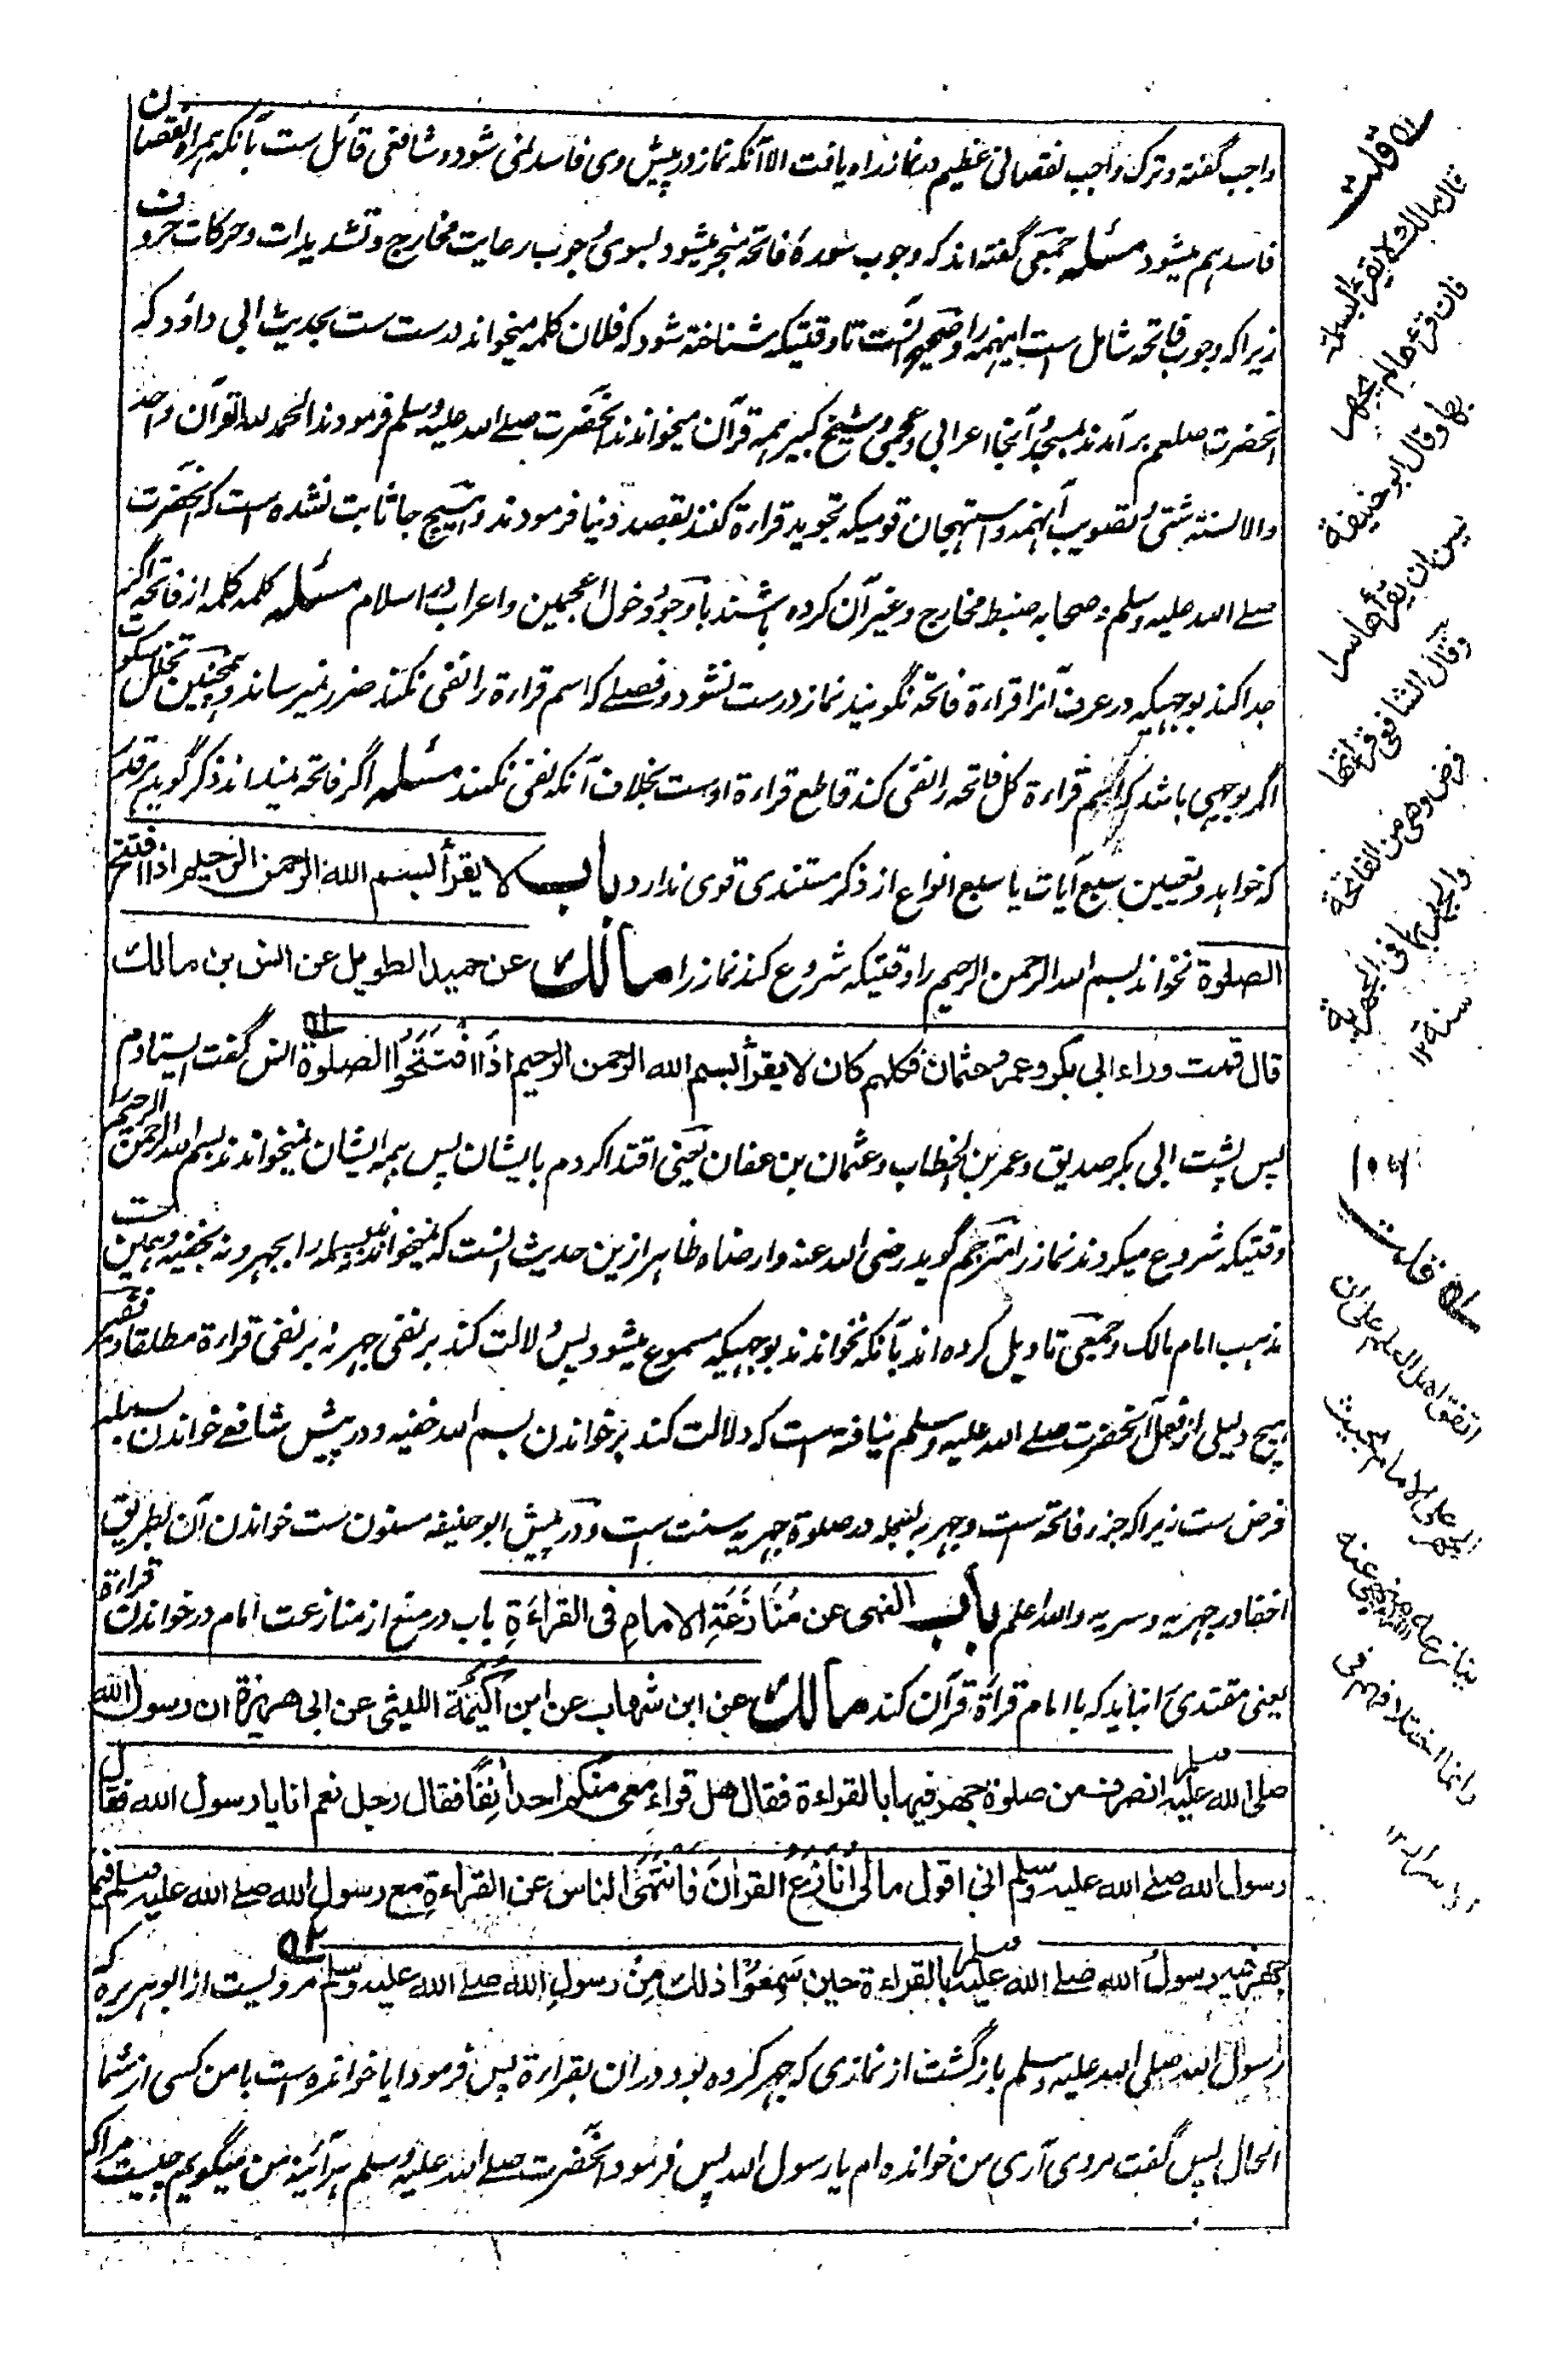 واجب گفته و ترک واجب نقصانی عظیم در نماز راه یافت الا آنکه نماز در پیش وی فاسد نمی شود و شافعی قائل ست بآنکه همراه نقصان
فاسد هم میشود مسئله جمعی گفته اند که وجوب سورۀ فاتحه منجر میشود بسوی وجوب رعایت مخارج و تشدیدات و حرکات حروف
زیراکه وجوب فاتحه شامل ست اینهمه را و صحیح آنست تا وقتیکه شناخته شود که فلان کلمه میخواند درست ست بحدیث ابی داؤد که
آنحضرت صلعم برآمدند بمسجد و آنجا اعرابی و عجمی و شیخ کبیر همه قرآن میخواندند آنحضرت صلے الله علیه وسلم فرمودند الحمد لله القرآن واحد
والالسنة شتی و تصویب اینهمه و استهجان قومیکه تجوید قراءة کنند بقصد دنیا فرمودند و هیچ جا ثابت نشده است که آنحضرت
صلے الله علیه وسلم و صحابه ضبط مخارج و غیر آن کرده باشند باوجود دخول اعجمین و اعراب در اسلام مسئله کلمه کلمه از فاتحه اگر
جدا کند بوجهیکه در عرف آنرا قراءة فاتحه نگویند نماز درست نشود و فصلے که اسم قراءة را نفی نکند ضرر نمیرساند و همچنین تخلل سکوت
اگر بوجهی باشد که اسم قراءة کل فاتحه را نفی کند قاطع قراءة اوست بخلاف آنکه نفی نکند مسئله اگر فاتحه نمیداند ذکر گوید هر قدر
که خواهد و تعیین سبع آیات یا سبع انواع از ذکر مستندی قوی ندارد باب لا یقرأ بسم الله الرحمن الرحیم اذا افتتح
الصلوة نخواند بسم الله الرحمن الرحیم را وقتیکه شروع کند نماز را مالک عن حمید الطویل عن انس بن مالک
قال قمت وراء ابی بکر و عمر و عثمان فکلهم کان لا یقرأ بسم الله الرحمن الرحیم اذا افتتحوا الصلوة انس گفت ایستادم
پس پشت ابی بکر صدیق و عمر بن الخطاب و عثمان بن عفان یعنی اقتدا کردم بایشان پس همه ایشان نمیخواندند بسم الله الرحمن الرحیم را
وقتیکه شروع میکردند نماز را مترجم گوید رضی الله عنه و ارضاه ظاهر ازین حدیث آنست که نمیخواندند بسمله را بجهر و نه بخفیه و همین ست
مذهب امام مالک و جمعی تاویل کرده اند بآنکه نخواندند بوجهیکه مسموع میشود پس دلالت کند بر نفی جهر نه بر نفی قراءة مطلقا و فقیر
هیچ دلیلی از فعل آنحضرت صلے الله علیه وسلم نیافته است که دلالت کند بر خواندن بسم الله خفیه و در پیش شافعے خواندن بسمله
فرض ست زیراکه جزء فاتحه است و جهر به بسمله در صلوة جهریه سنت است و در پیش ابو حنیفه مسنون ست خواندن آن بطریق
اخفا در جهریه و سریه والله اعلم باب النهی عن مُنَازَعَةِ الامامِ فی القراءَةِ باب در منع از منازعت امام در خواندن قراءة
یعنی مقتدی را نباید که با امام قراءة قرآن کند مالک عن ابن شهاب عن ابن اُکَیمَةَ اللیثی عن ابی هریرة ان رسول الله
صلی الله علیه وسلم انصرف من صلوة جهر فیها بالقراءة فقال هل قراء معی منکم احد اٰنِفًا فقال رجل نعم انا یا رسول الله فقال
رسول الله صلے الله علیه وسلم انی اقول مالی اُنَازَعُ القراٰنَ فانتهَی الناس عن القراءةِ مع رسول الله صلے الله علیه وسلم فیما
جهر فیه رسولُ الله صلے الله علیه وسلم بالقراءة حین سَمِعُوا ذلک مِن رسولِ الله صلے الله علیه وسلم مرویست از ابو هریره که
رسول الله صلی الله علیه وسلم بازگشت از نمازی که جهر کرده بود در ان بقراءة پس فرمود ایا خوانده است با من کسی از شما
الحال پس گفت مردی آری من خوانده ام یا رسول الله پس فرمود آنحضرت صلے الله علیه وسلم هر آئینه من میگویم چیست مرا که
قلت
قال مالک لا یقرء البسملة
فان قرءها لم یجهر
بها وقال ابو حنیفة
یسن ان یقرأها سرا
وقال الشافعی قراءتها
فرض وهی من الفاتحة
والجهر بها فی الجهریة
سنة ۱۲
۱۰۶
قلت
اتفق اهل العلم علی ان
الجهر علی الامام بحیث
ینازعه منهی عنه
وانما اختلافهم فی